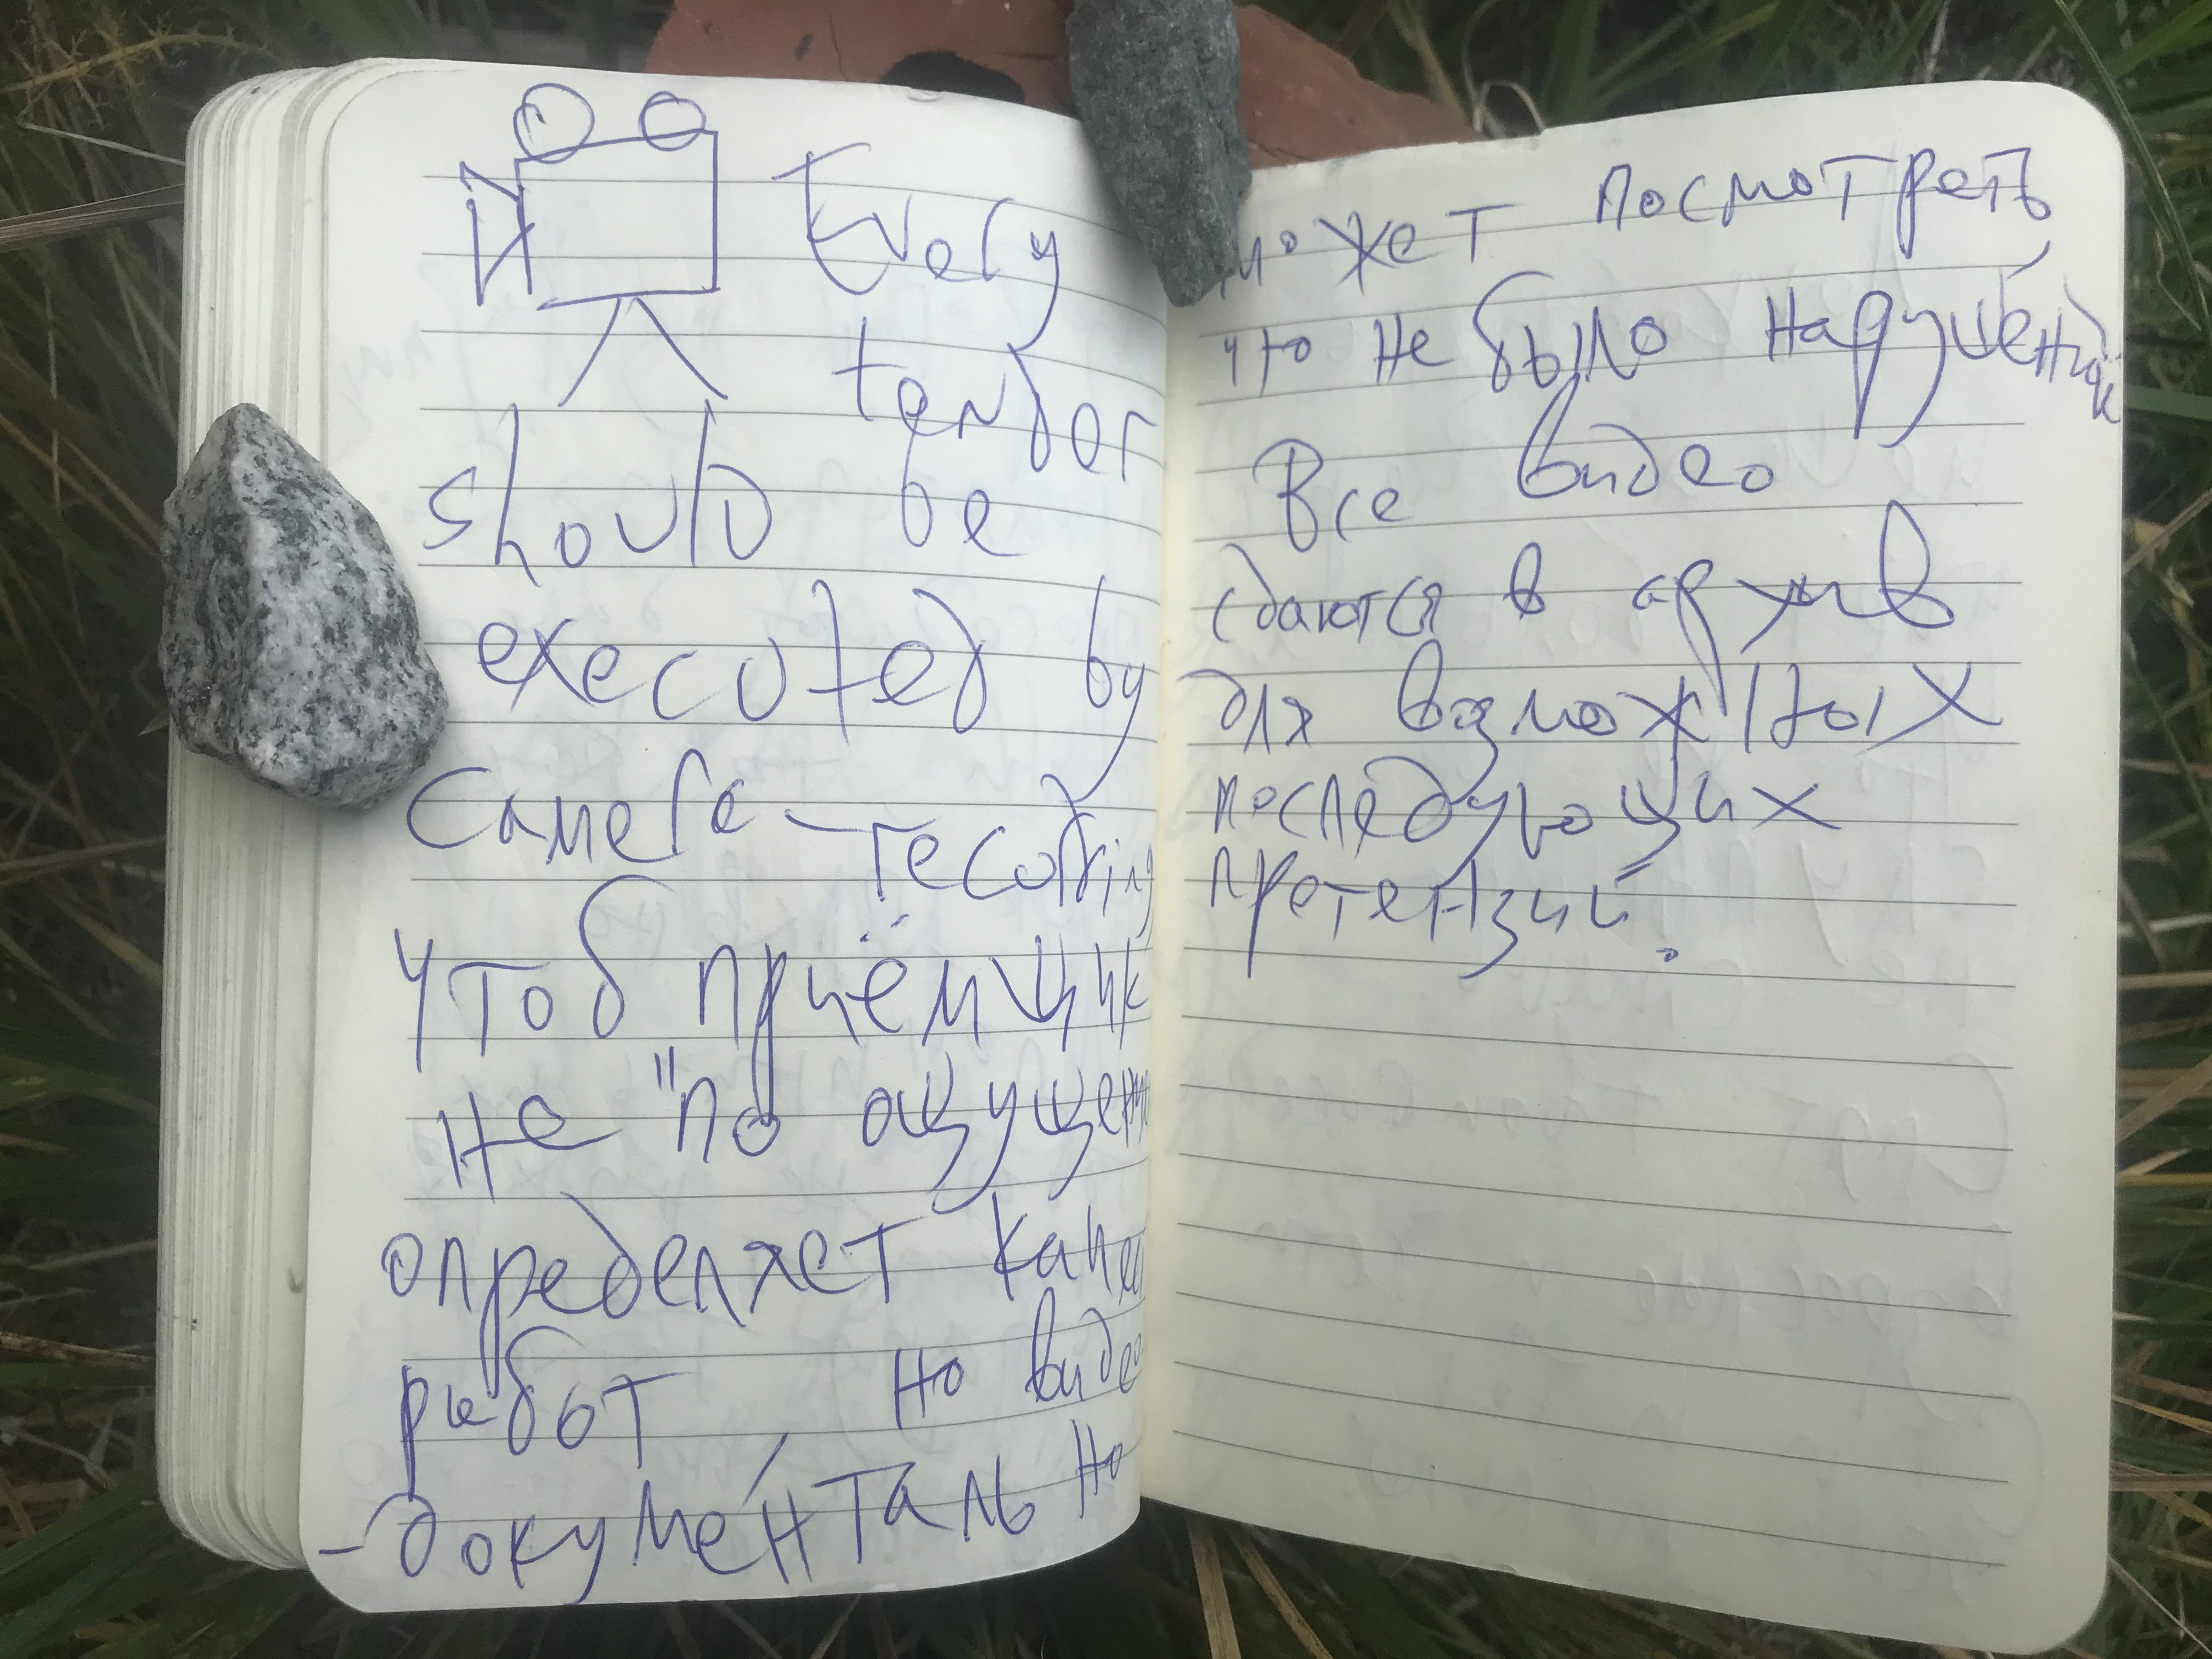 Every
tender
should be
executed by
camera-recording
чтоб приёмщик
не "по ощущени
определяет каче
работ но видео
- документально
может посмотреть
что не было нарушений
Все видео
сдаются в архив
для возможных
последующих
претензий.